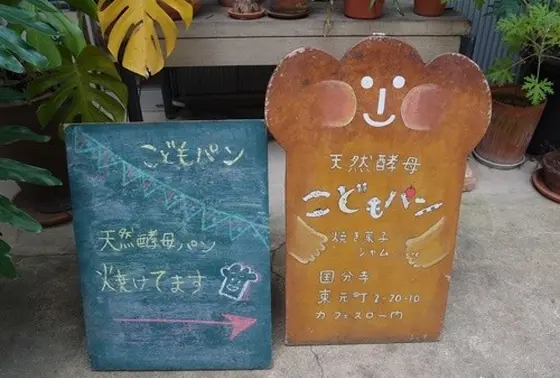 こどもパン
天然酵母パン
焼けてます
天然酵母
こどもパン
焼き菓子
ジャム
国分寺
東元町2-20-10
カフェスロー内